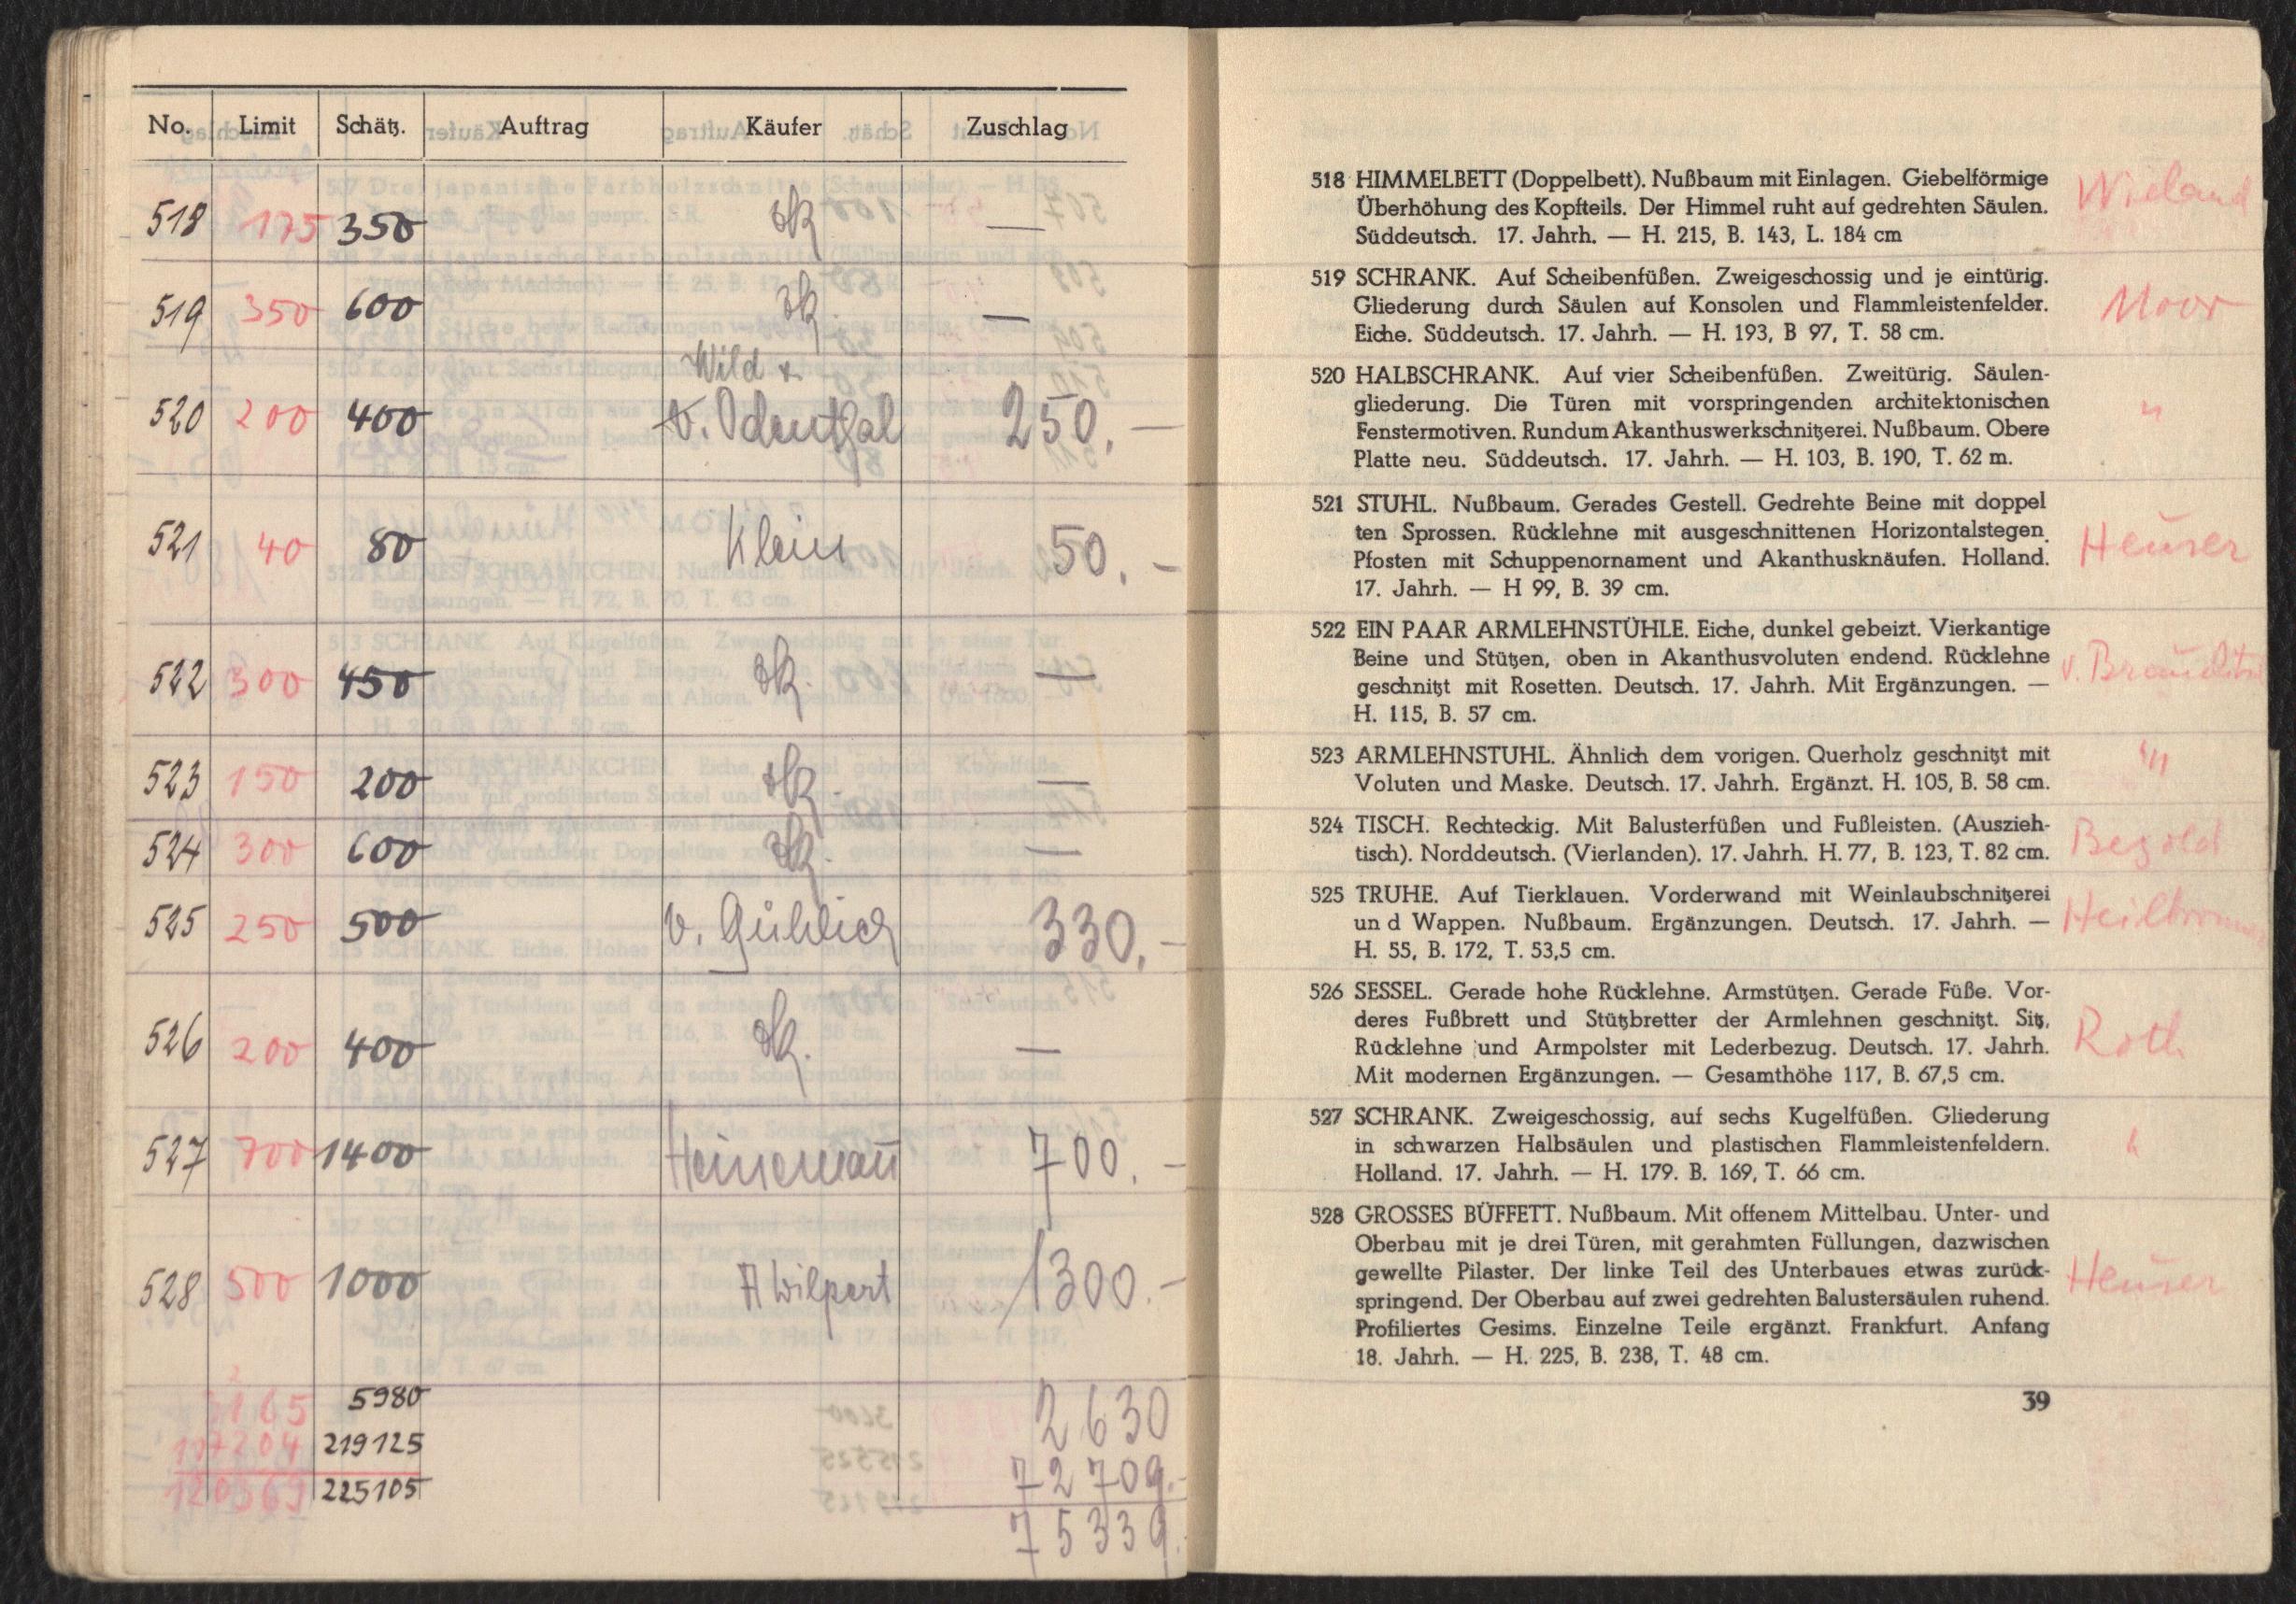 No. Limit Schätz. Auftrag Käufer Zuschlag
518 175 350 —
519 350 600 —
Wild &
520 200 400 v. Odenthal 250.—
521 40 80 Klein 50.—
522 300 450 —
523 150 200 —
524 300 600 —
525 250 500 v. Gühlich 330.—
526 200 400 —
527 700 1400 Heinemann 700.—
528 500 1000 A Wilpert 1300.—
5980 2630
219125 72709.-
225105 75339.
518 HIMMELBETT (Doppelbett). Nußbaum mit Einlagen. Giebelförmige Wieland
Überhöhung des Kopfteils. Der Himmel ruht auf gedrehten Säulen.
Süddeutsch. 17. Jahrh. — H. 215, B. 143, L. 184 cm
519 SCHRANK. Auf Scheibenfüßen. Zweigeschossig und je eintürig.
Gliederung durch Säulen auf Konsolen und Flammleistenfelder. Moor
Eiche. Süddeutsch. 17. Jahrh. — H. 193, B 97, T. 58 cm.
520 HALBSCHRANK. Auf vier Scheibenfüßen. Zweitürig. Säulen-
gliederung. Die Türen mit vorspringenden architektonischen "
Fenstermotiven. Rundum Akanthuswerkschnitzerei. Nußbaum. Obere
Platte neu. Süddeutsch. 17. Jahrh. — H. 103, B. 190, T. 62 m.
521 STUHL. Nußbaum. Gerades Gestell. Gedrehte Beine mit doppel
ten Sprossen. Rücklehne mit ausgeschnittenen Horizontalstegen. Heuser
Pfosten mit Schuppenornament und Akanthusknäufen. Holland.
17. Jahrh. — H 99, B. 39 cm.
522 EIN PAAR ARMLEHNSTÜHLE. Eiche, dunkel gebeizt. Vierkantige
Beine und Stützen, oben in Akanthusvoluten endend. Rücklehne
geschnitzt mit Rosetten. Deutsch. 17. Jahrh. Mit Ergänzungen. —
H. 115, B. 57 cm.
523 ARMLEHNSTUHL. Ähnlich dem vorigen. Querholz geschnitzt mit "
Voluten und Maske. Deutsch. 17. Jahrh. Ergänzt. H. 105, B. 58 cm.
524 TISCH. Rechteckig. Mit Balusterfüßen und Fußleisten. (Auszieh- Bezold
tisch). Norddeutsch. (Vierlanden). 17. Jahrh. H. 77, B. 123, T. 82 cm.
525 TRUHE. Auf Tierklauen. Vorderwand mit Weinlaubschnitzerei
un d Wappen. Nußbaum. Ergänzungen. Deutsch. 17. Jahrh. — Heilbronner
H. 55, B. 172, T. 53,5 cm.
526 SESSEL. Gerade hohe Rücklehne. Armstützen. Gerade Füße. Vor-
deres Fußbrett und Stützbretter der Armlehnen geschnitzt. Sitz,
Rücklehne und Armpolster mit Lederbezug. Deutsch. 17. Jahrh. Roth
Mit modernen Ergänzungen. — Gesamthöhe 117, B. 67,5 cm.
527 SCHRANK. Zweigeschossig, auf sechs Kugelfüßen. Gliederung
in schwarzen Halbsäulen und plastischen Flammleistenfeldern. "
Holland. 17. Jahrh. — H. 179. B. 169, T. 66 cm.
528 GROSSES BÜFFETT. Nußbaum. Mit offenem Mittelbau. Unter- und
Oberbau mit je drei Türen, mit gerahmten Füllungen, dazwischen
gewellte Pilaster. Der linke Teil des Unterbaues etwas zurück- Heuser
springend. Der Oberbau auf zwei gedrehten Balustersäulen ruhend.
Profiliertes Gesims. Einzelne Teile ergänzt. Frankfurt. Anfang
18. Jahrh. — H. 225, B. 238, T. 48 cm.
39